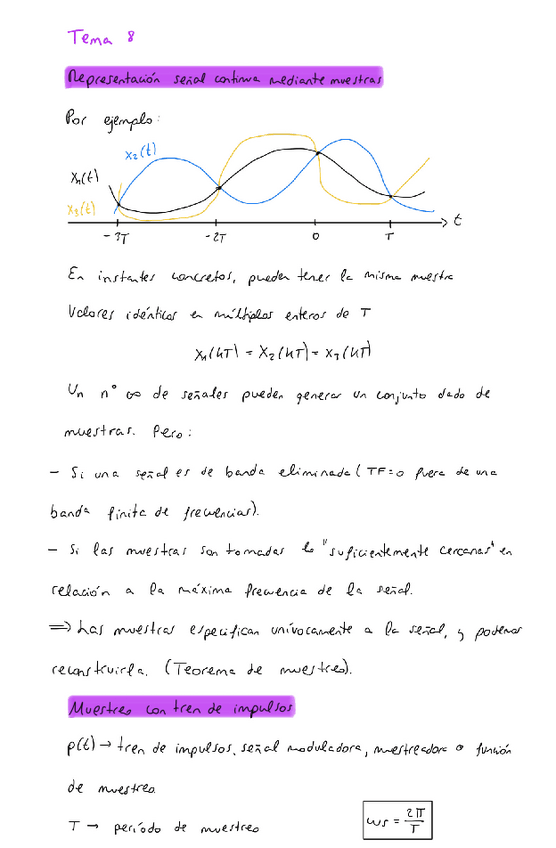 Tema 8
Representación señal continua mediante muestras
Por ejemplo:
x₂(t)
x₁(t)
x₃(t)
t
-3T -2T 0 T
En instantes concretos, pueden tener la misma muestra
Valores idénticos en múltiplos enteros de T
x₁(kT) = x₂(kT) = x₃(kT)
Un nº ∞ de señales pueden generar un conjunto dado de
muestras. Pero:
- Si una señal es de banda eliminada (TF=0 fuera de una
banda finita de frecuencias).
- Si las muestras son tomadas lo "suficientemente cercanas" en
relación a la máxima frecuencia de la señal.
⇒ Las muestras especifican unívocamente a la señal, y podemos
reconstruirla. (Teorema de muestreo).
Muestreo con tren de impulsos
p(t) → tren de impulsos, señal moduladora, muestreadora o función
de muestreo.
T → período de muestreo
ωs = 2π/T